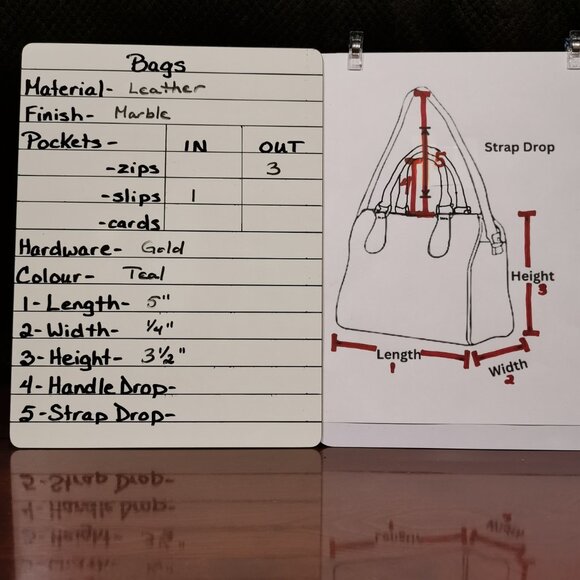 Bags
Material- Leather
Finish- Marble
Pockets - IN OUT
-zips 3
-slips 1
-cards
Hardware- Gold
Colour- Teal
1-Length- 5"
2-Width- 1/4"
3-Height- 3 1/2"
4-Handle Drop-
5-Strap Drop-
Strap Drop
5
4
Height
3
Length
1
Width
2